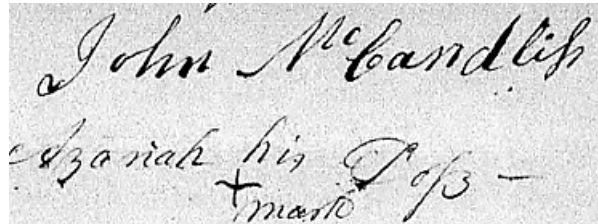 John McCandlish
Azariah his
+
mark